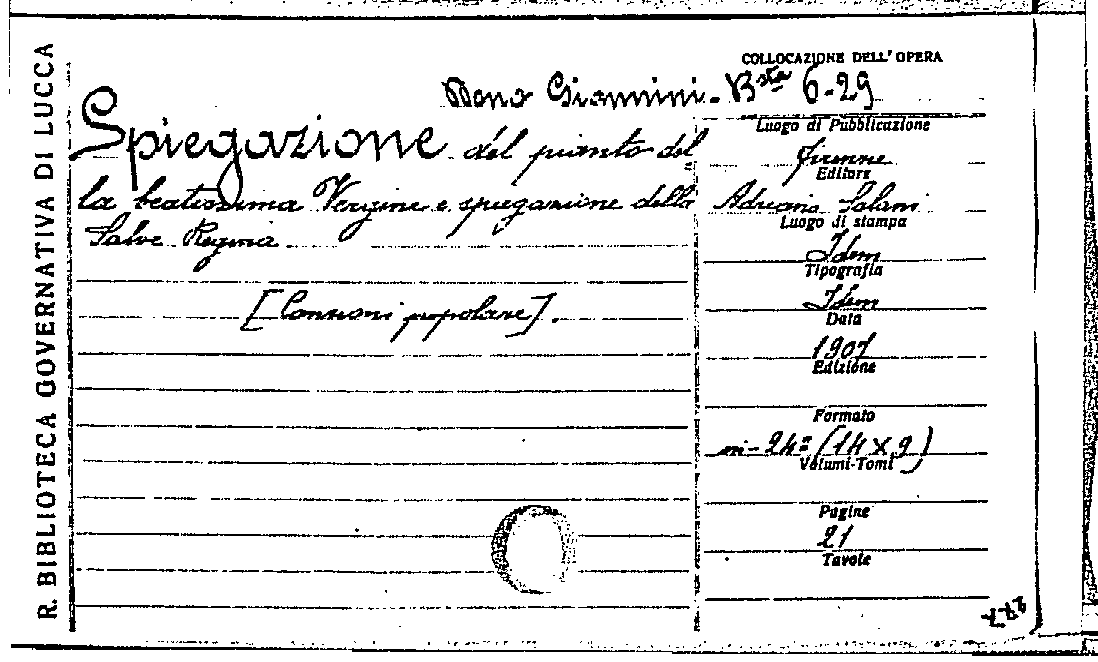 R. BIBLIOTECA GOVERNATIVA DI LUCCA
COLLOCAZIONE DELL'OPERA
Dono Giannini - Bsta 6-29
Spiegazione del pianto del=
la beatissima Vergine e spiegazione della
Salve Regina
[Canzoni popolare].
Luogo di Pubblicazione
Firenze
Editore
Adriano Salani
Luogo di stampa
Idem
Tipografia
Idem
Data
1907
Edizione
Formato
in-24º (14 X 9)
Volumi-Tomi
Pagine
21
Tavole